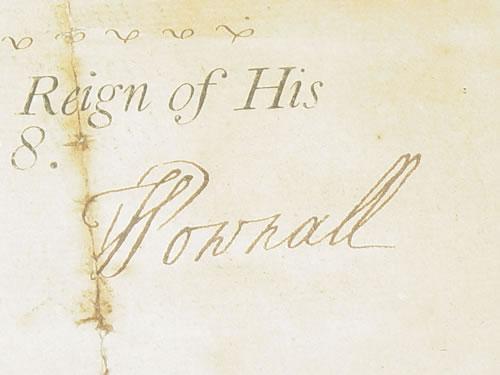 Reign of His
8.
TPownall